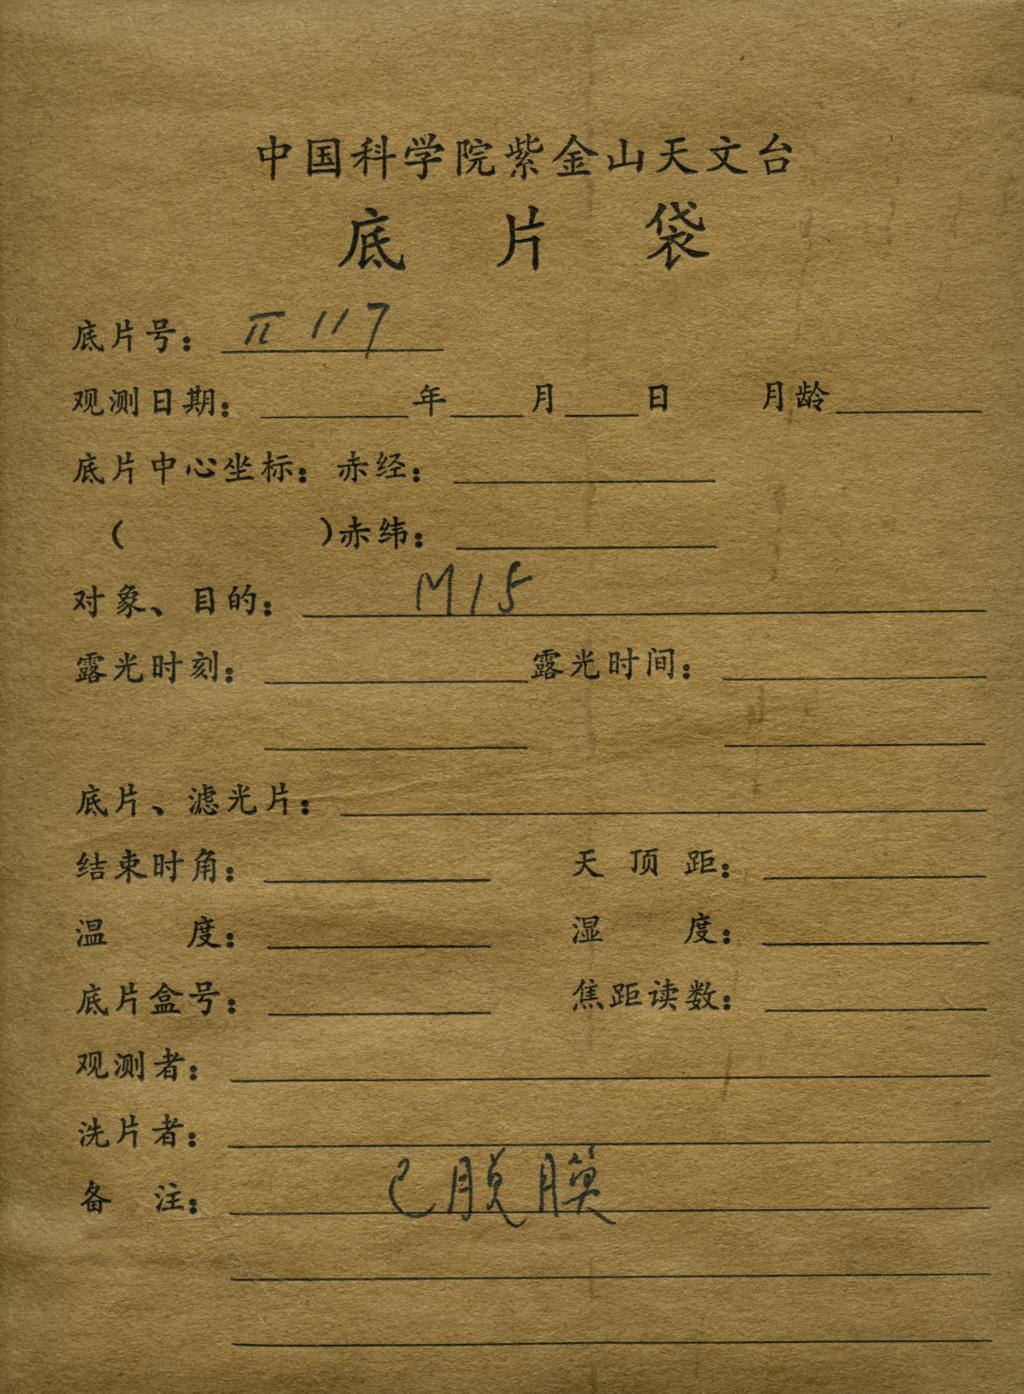 中国科学院紫金山天文台
底片袋
底片号： II 117
观测日期： 年 月 日 月龄
底片中心坐标：赤经：
( )赤纬：
对象、目的： M15
露光时刻： 露光时间：
底片、滤光片：
结束时角： 天顶距：
温度： 湿度：
底片盒号： 焦距读数：
观测者：
洗片者：
备注： 已脱膜